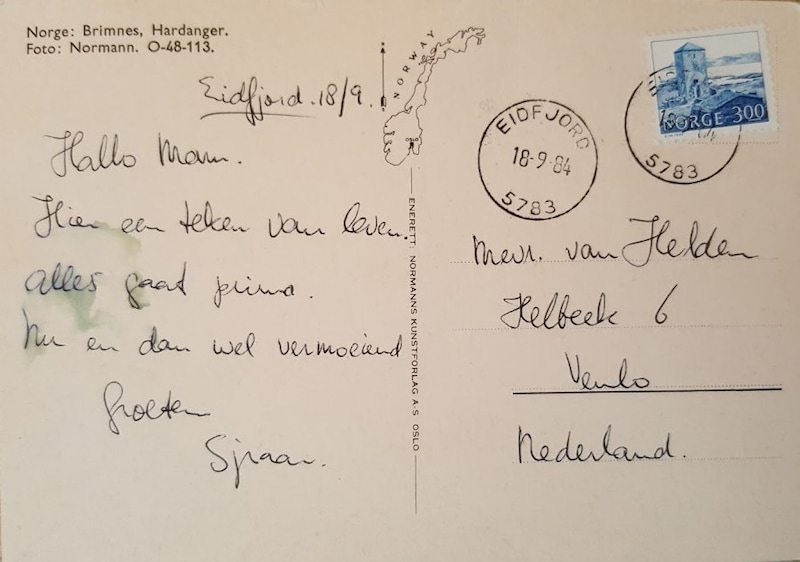 Norge: Brimnes, Hardanger.
Foto: Normann. O-48-113.
Eidfjord. 18/9.
Hallo Mam.
Hier een teken van leven.
alles gaat prima.
Nu en dan wel vermoeiend
Groeten
Sjraar.
NORWAY
OSLO
ENERETT: NORMANNS KUNSTFORLAG A-S OSLO
EIDFJORD
18-9-84
5783
NORGE 300
5783
Mevr. van Helden
Helbeek 6
Venlo
Nederland.